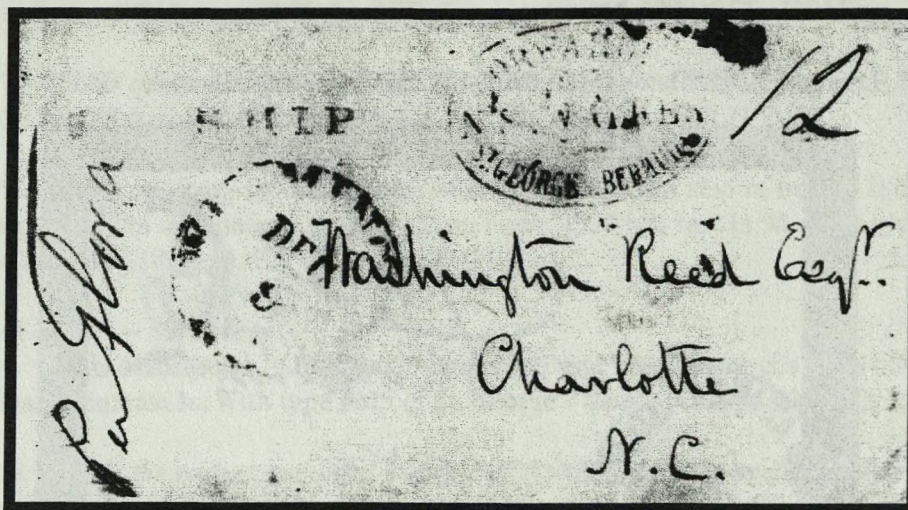 SHIP
ST. GEORGE BERMUDA
12
Per Flora
DE
Washington Reed Esqr.
Charlotte
N.C.